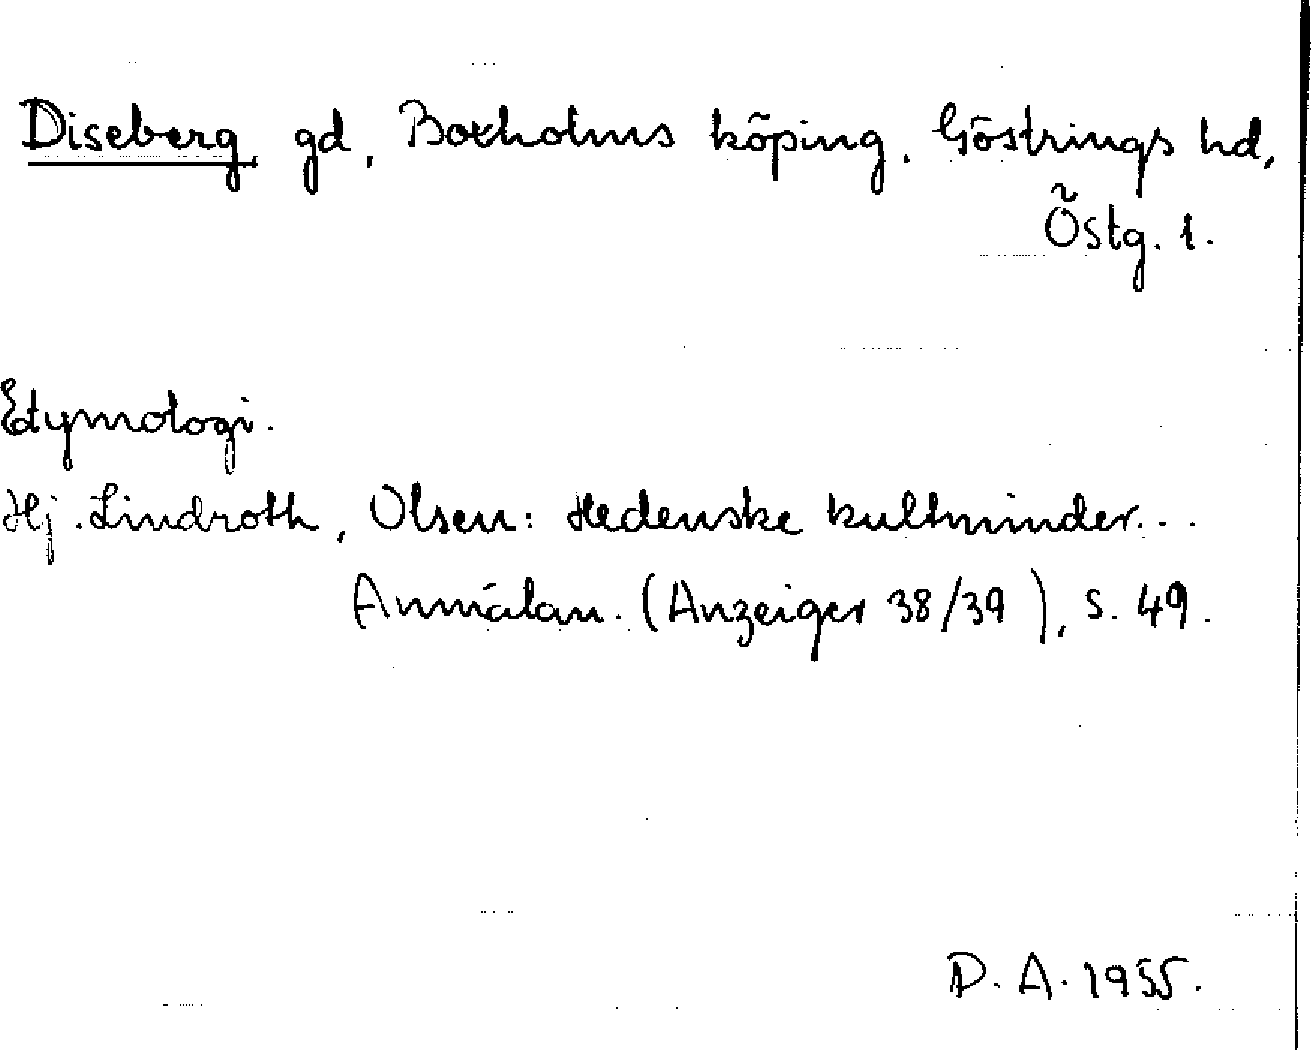 Diseberg gd, Boxholms köping, Göstrings hd,
Östg. l.
Etymologi.
Hj. Lindroth, Olsen: Hedenske kultminder...
Anmälan. (Anzeiger 38/39), s. 49.
D. A. 1955.